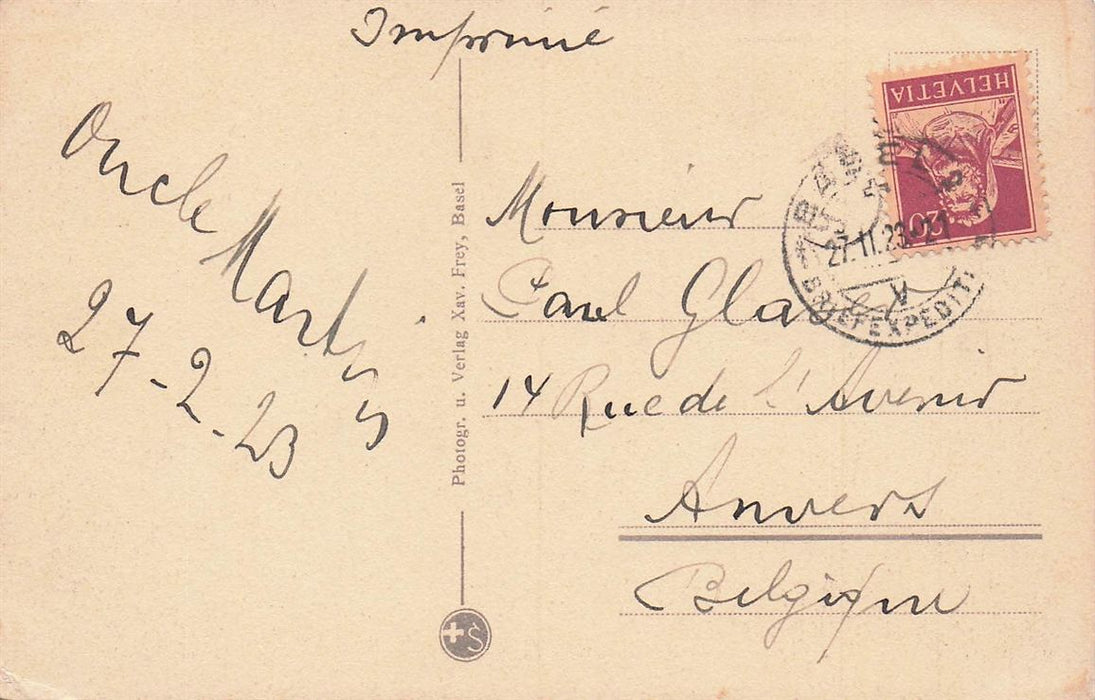 Imprimé
Oncle Martin
27-2-23
Photogr. u. Verlag Xav. Frey, Basel
S
HELVETIA
20
BASEL
27.II.23-21
A
BRIEFEXPEDIT
Monsieur
Carl
14 Rue de l'Avenir
Anvers
Belgique